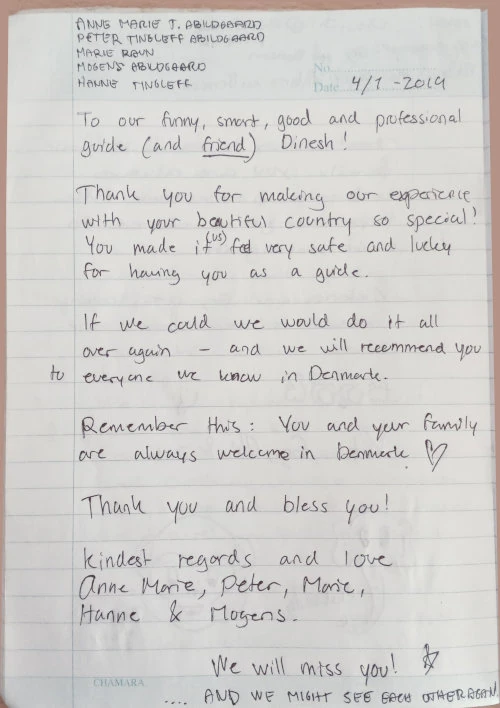 ANNE MARIE J. ABILDGAARD
PETER TINGLEFF ABILDGAARD
MARIE RAUN
MOGENS ABILDGAARD
HANNE TINGLEFF
No.
Date 4/1-2019
To our funny, smart, good and professional
guide (and friend) Dinesh!
Thank you for making our experience
with your beautiful country so special!
You made it (us) feel very safe and lucky
for having you as a guide.
If we could we would do it all
over again – and we will recommend you
to everyone we know in Denmark.
Remember this: You and your family
are always welcome in Denmark ♡
Thank you and bless you!
Kindest regards and love
Anne Marie, Peter, Marie,
Hanne & Mogens.
We will miss you! ☆
CHAMARA
.... AND WE MIGHT SEE EACH OTHER AGAIN.